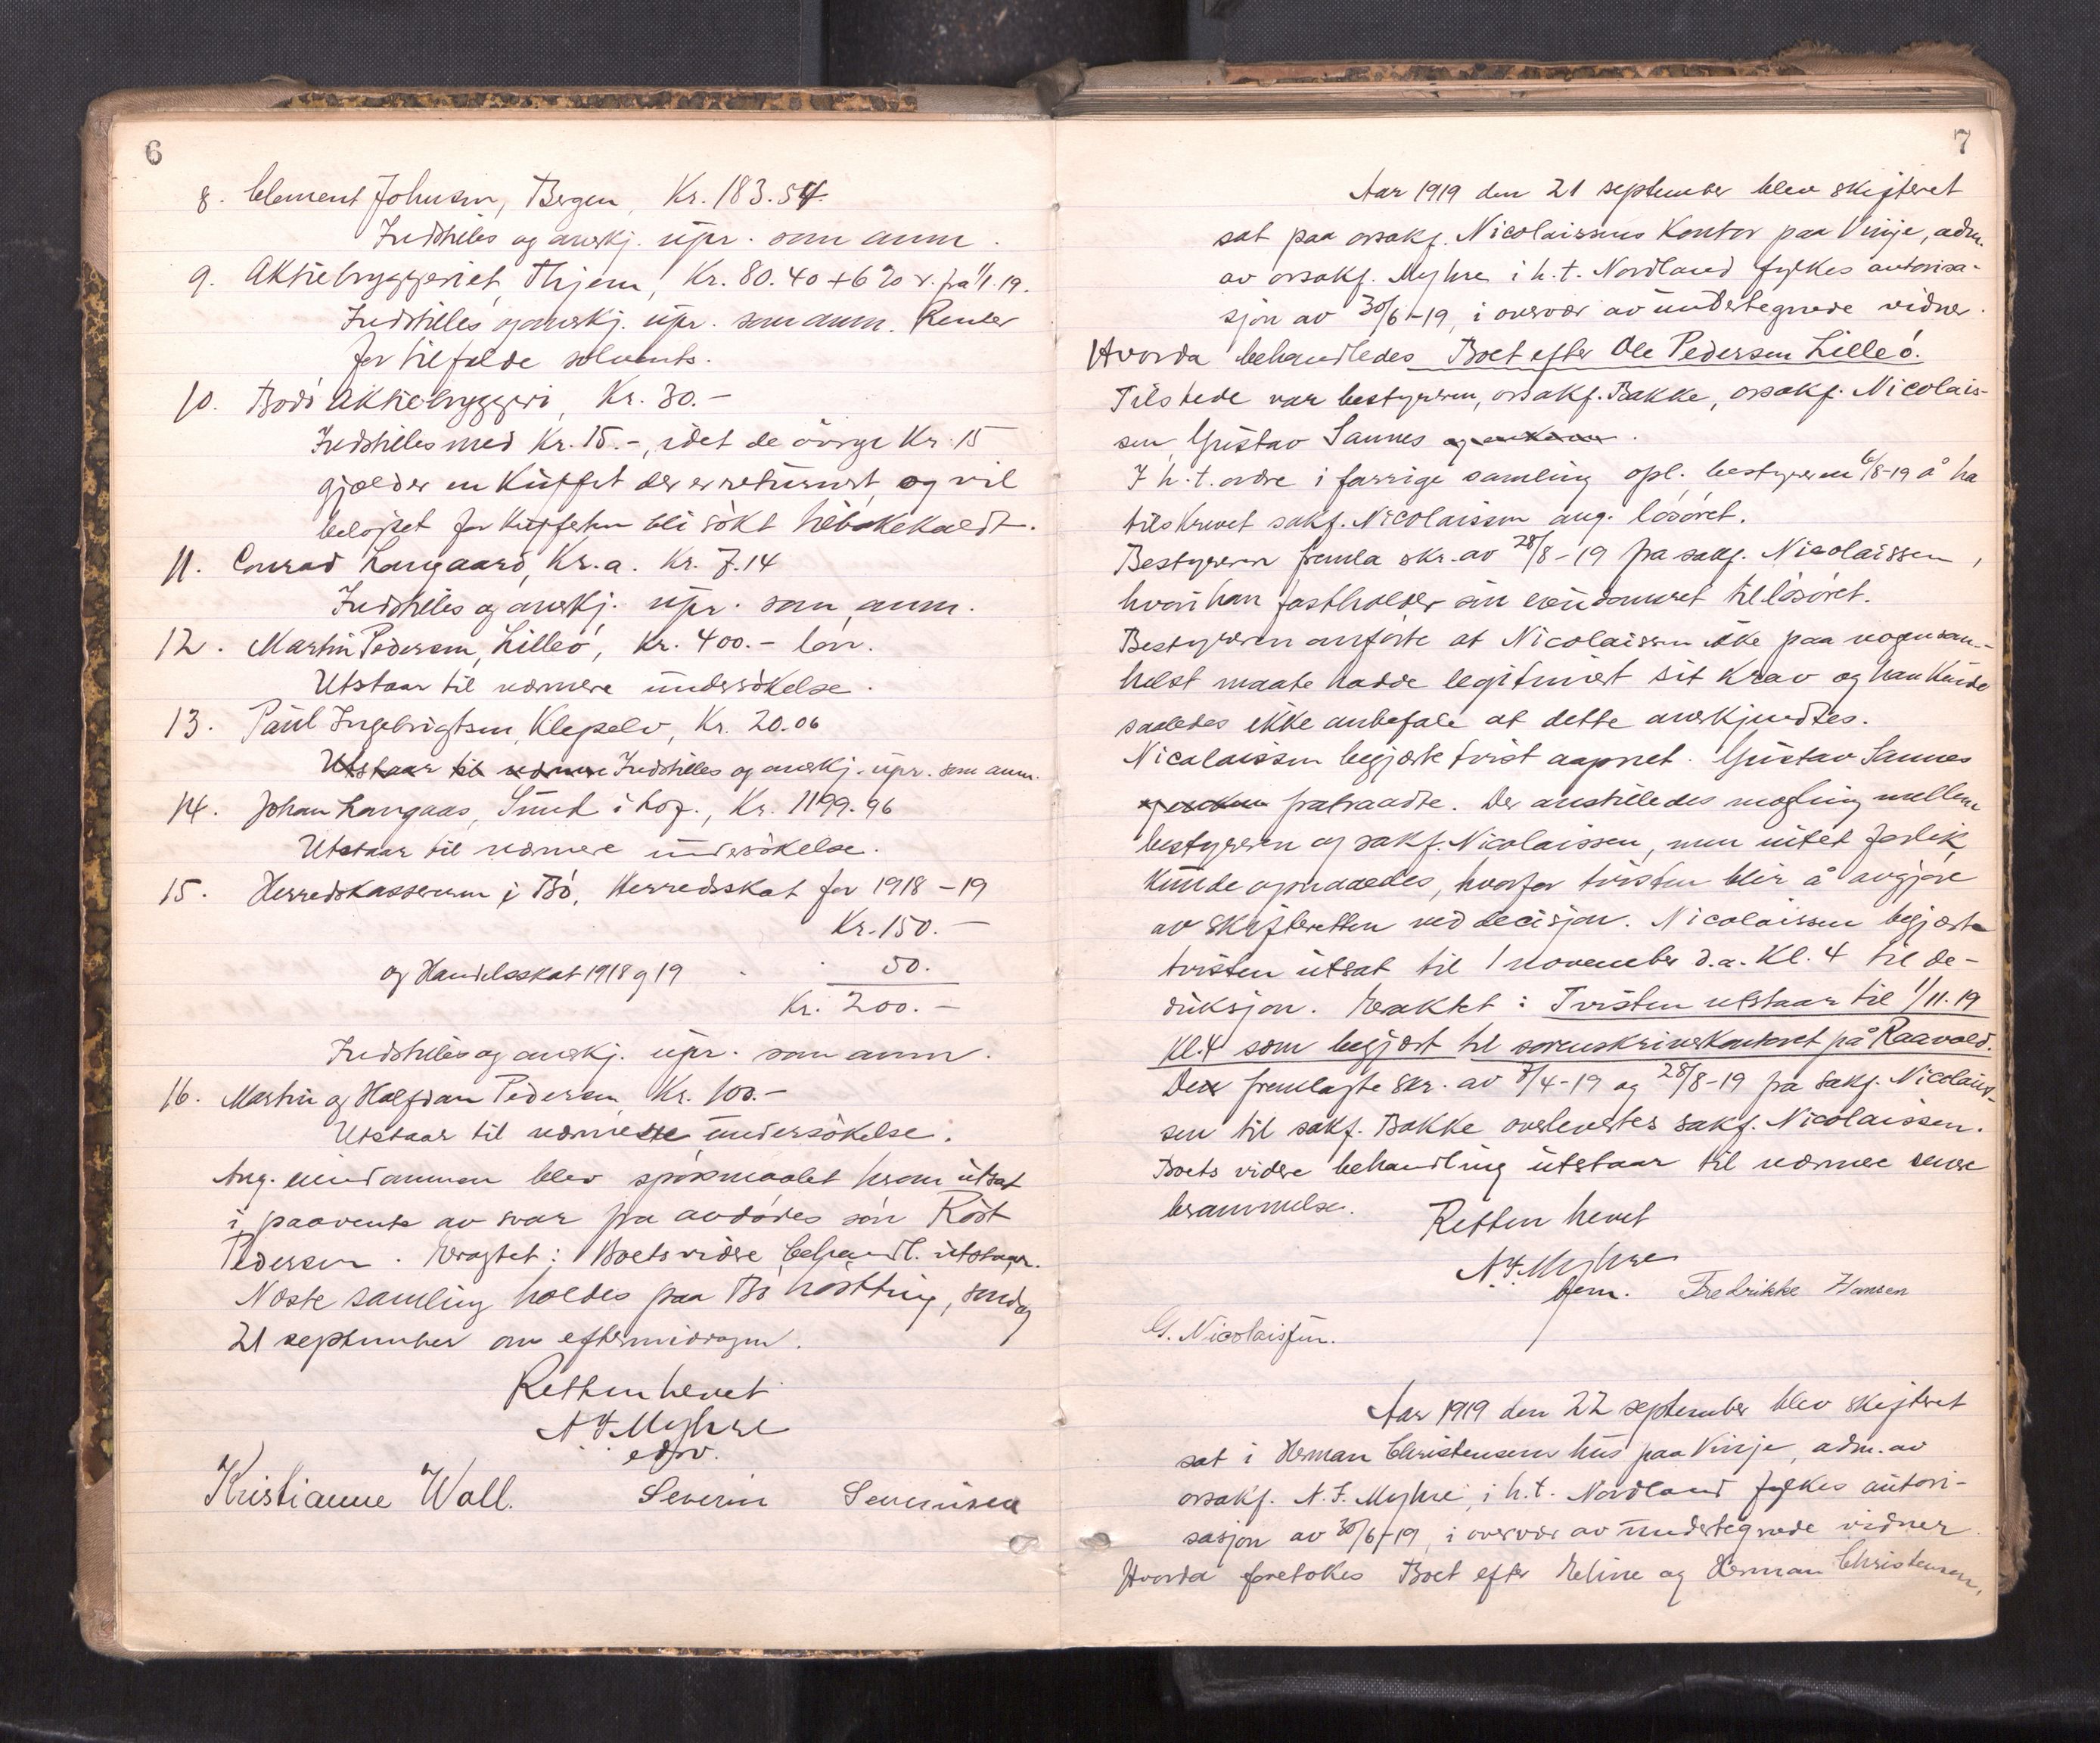 6
8. Clement Johnsen, Bergen, Kr. 183.54.
Indstilles og anerkj. upr. som anm.
9. Aktiebryggeriet, Thjem, Kr. 80.40 + 6% r. fra 1/1.19.
Indstilles og anerkj. upr. som anm. Renter
for tilfælde solvents.
10. Bodö Aktiebryggeri, Kr. 30.-
Indstilles med Kr. 15.-, idet de övrige Kr. 15
gjælder en Kuffert der er returnert, og vil
belöpet for Kufferten bli sökt tilbakekaldt.
11. Conrad Langaard, Kr.a. Kr. 7.14
Indstilles og anerkj. upr. som anm.
12. Martin Pedersen, Lilleö, Kr. 400.- lön.
Utstaar til nærmere undersökelse.
13. Paul Ingebrigtsen, Klepelv, Kr. 20.06
Utstaar til nærmere Indstilles og anerkj. upr. som anm.
14. Johan Langaas, Sund i Lof., Kr. 1199.96
Utstaar til nærmere undersökelse.
15. Herredskassereren i Bö, Herredsskat for 1918-19
Kr. 150.-
og Handelsskat 1918 og 19 . . 50.
Kr. 200.-
Indstilles og anerkj. upr. som anm.
16. Martin og Halfdan Pedersen Kr. 100.-
Utstaar til nærmere undersökelse.
Ang. eiendommen blev spörsmaalet herom utsat
i paavente av svar fra avdödes sön Röst
Pedersen. Eragtet: Boets videre behandl. utstaar.
Næste samling holdes paa Bö höstting, söndag
21 september om eftermiddagen.
Retten hevet
A F Myhre
edsv.
Kristianne Wall. Severin Severinsen
7
Aar 1919 den 21 september blev skifteret
sat paa orsakf. Nicolaissens Kontor paa Vinje, adm.
av orsakf. Myhre i h.t. Nordland fylkes autorisa-
sjon av 30/6-19, i overvær av undertegnede vidner.
Hvorda behandledes Boet efter Ole Pedersen Lilleö.
Tilstede var bestyreren, orsakf. Bakke, orsakf. Nicolais-
sen, Gustav Sannes og enken.
I h.t. ordre i forrige samling opl. bestyreren 6/8-19 å ha
tilskrevet sakf. Nicolaissen ang. lösöret.
Bestyreren fremla skr. av 28/8-19 fra sakf. Nicolaissen,
hvori han fastholder sin eiendomsret til lösöret.
Bestyreren anförte at Nicolaissen ikke paa nogensom-
helst maate hadde legitimert sit krav og han kunde
saaledes ikke anbefale at dette anerkjendtes.
Nicolaissen begjærte tvist aapnet. Gustav Sannes
og enken fratraadte. Der anstilledes megling mellem
bestyreren og sakf. Nicolaissen, men intet forlik
kunde opnaaedes, hvorfor tvisten blir å avgjöre
av skifteretten ved decisjon. Nicolaissen begjærte
tvisten utsat til 1 november d.a. Kl. 4 til de-
duksjon. Eraktet: Tvisten utstaar til 1/11.19
Kl. 4 som begjært til sorenskriverkontoret på Raavold.
Den fremlagte skr. av 7/4-19 og 28/8-19 fra sakf. Nicolais-
sen til sakf. Bakke overlevertes sakf. Nicolaissen.
Boets videre behandling utstaar til nærmere senere
berammelse.
Retten hevet
A. F. Myhre
bem. Fredrikke Hansen
G. Nicolaissen.
Aar 1919 den 22 september blev skifteret
sat i Herman Christensens hus paa Vinje, adm. av
orsakf. A. F. Myhre, i h.t. Nordland fylkes autori-
sasjon av 30/6-19, i overvær av undertegnede vidner.
Hvorda foretokes Boet efter Eline og Herman Christensen,